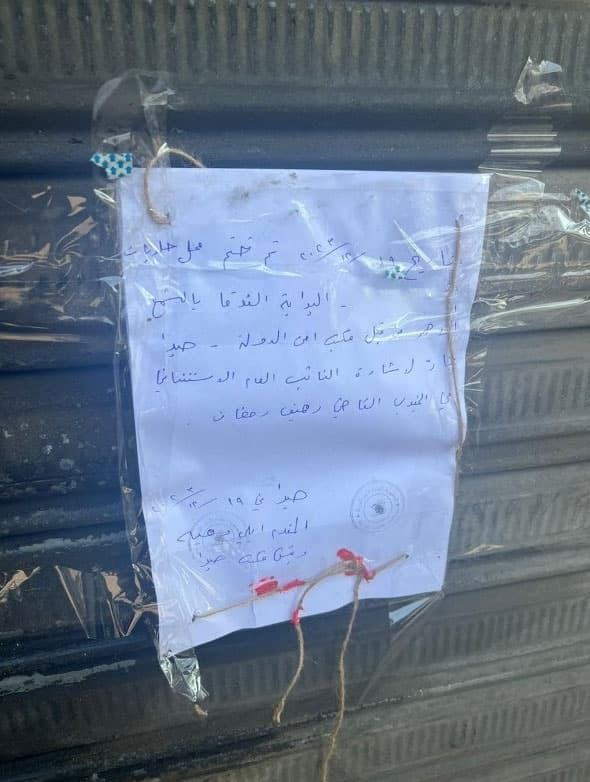 بتاريخ ١٩/١٢/٢٠٢٣ تم ختم محل حلويات
البداية الفوقا بالشمع
الأحمر من قبل مكتب امن الدولة - صيدا
إشارة لإشارة النائب العام الاستئنافي
في الجنوب القاضي رهيف رمضان .
صيدا في ١٩/١٢/٢٠٢٣
المقدم ايلي
مكتب صيدا